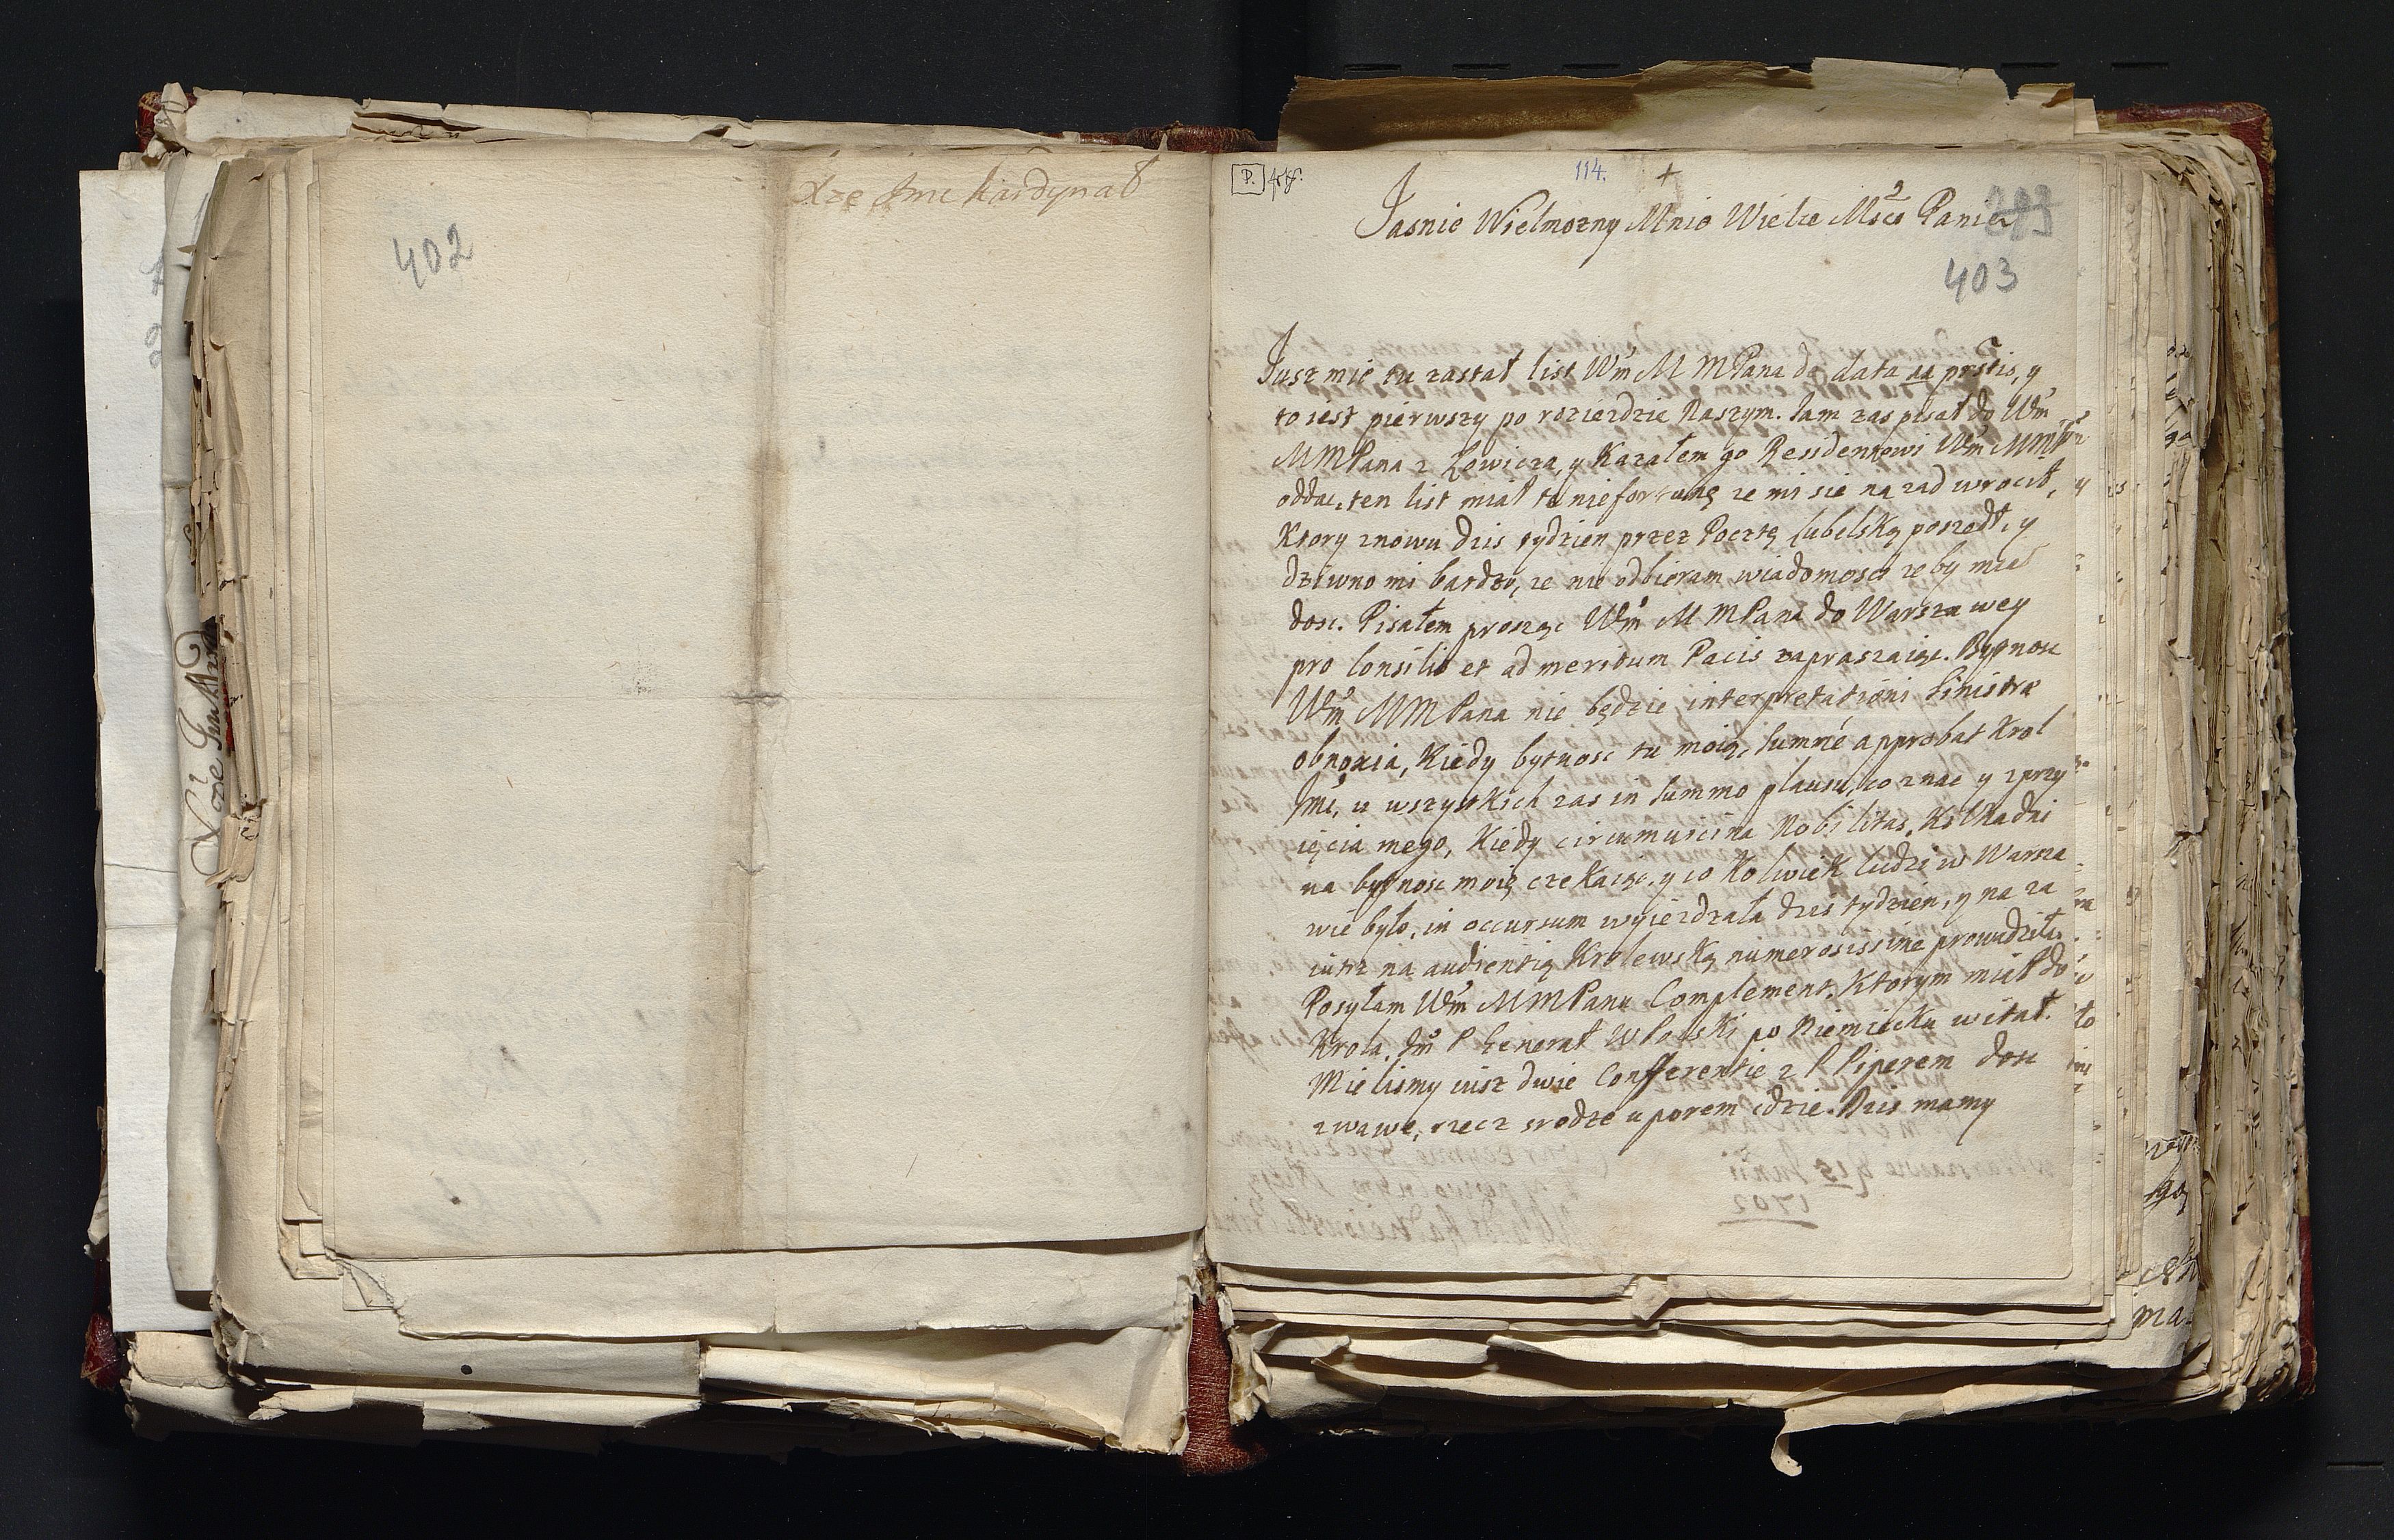 Xze Jmc kardynał
402
P.
114.
+
Jasnie Wielmozny Mnie Wielce Msci Panie
403
Jusz mie tu zastał list Wm M MPana de data aa prstis, y
to iest pierwszy po roziezdzie Naszym. Sam zas pisał do Wm
MMPana z Łowicza, y Kazałem go Residentowi Wm MMP
oddac, ten list miał te niefortunę ze mi sie na zad wrocił,
Ktory znowu dzis tydzien przez Pocztę lubelską poszedł, y
dziwno mi bardzo, ze nie odbieram wiadomosci zeby miec
dosc. Pisałem prosząc Wm M MPana do Warszawy
pro Consilio et ad meritum Pacis zapraszaiąc. Bytnosc
Wm MMPana nie będzie interpretationi sinistra
obnoxia, Kiedy bytnosc tu moię, summe approbat Krol
Jmc, u wszystkich zas in summo plausu, co znac y z przy
ięcia mego, Kiedy circumvicina Nobilitas, Kilka dni
na bytnosc moię czekaiąc, y co Kolwiek ludzi w Warsza
wie było, in occursum wyiezdzała dzis tydzien, y na za
iutrz na audientią Krolewską numerosissime prowadziła
Posyłam Wm MMPanu Complement, Ktorym miał do
Krola, Jm P Generał Wlowski po Niemiecku witał.
Mielismy iusz dwie Conferentie z P Piperem dosc
zwawe, rzecz srodze uporem idzie. Dzis mamy